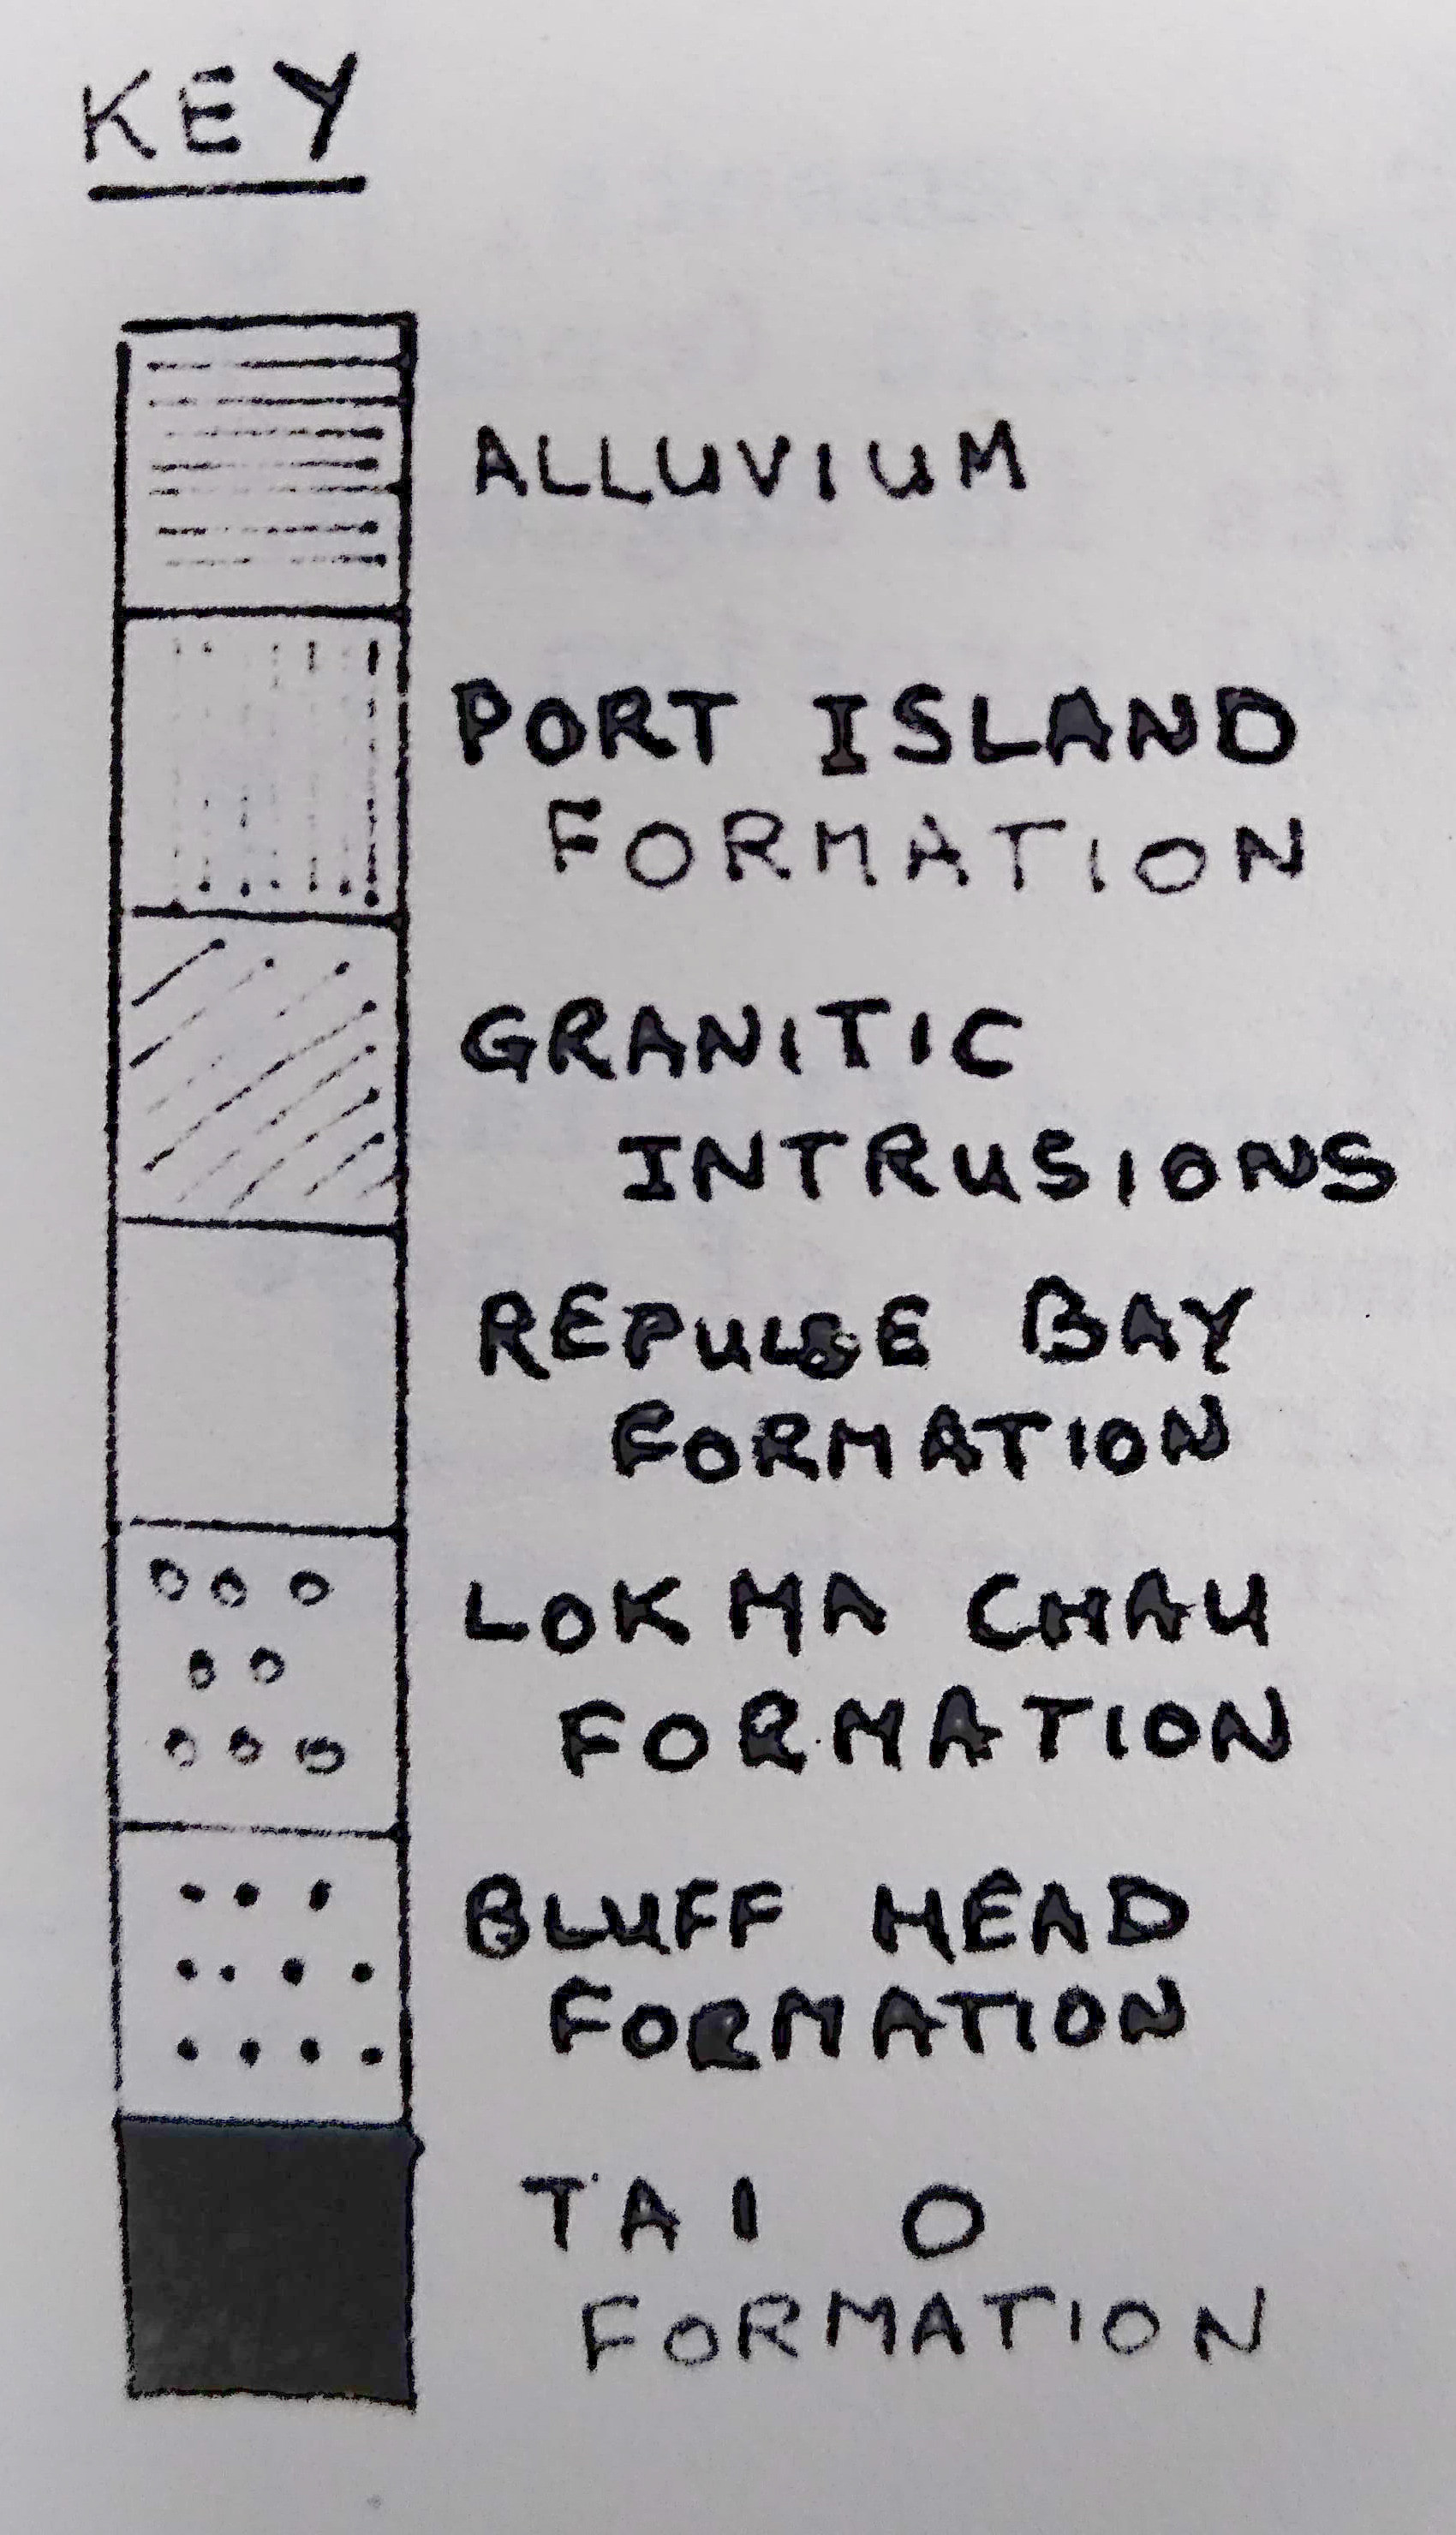 KEY
ALLUVIUM
PORT ISLAND
FORMATION
GRANITIC
INTRUSIONS
REPULSE BAY
FORMATION
LOK MA CHAU
FORMATION
BLUFF HEAD
FORMATION
TAI O
FORMATION